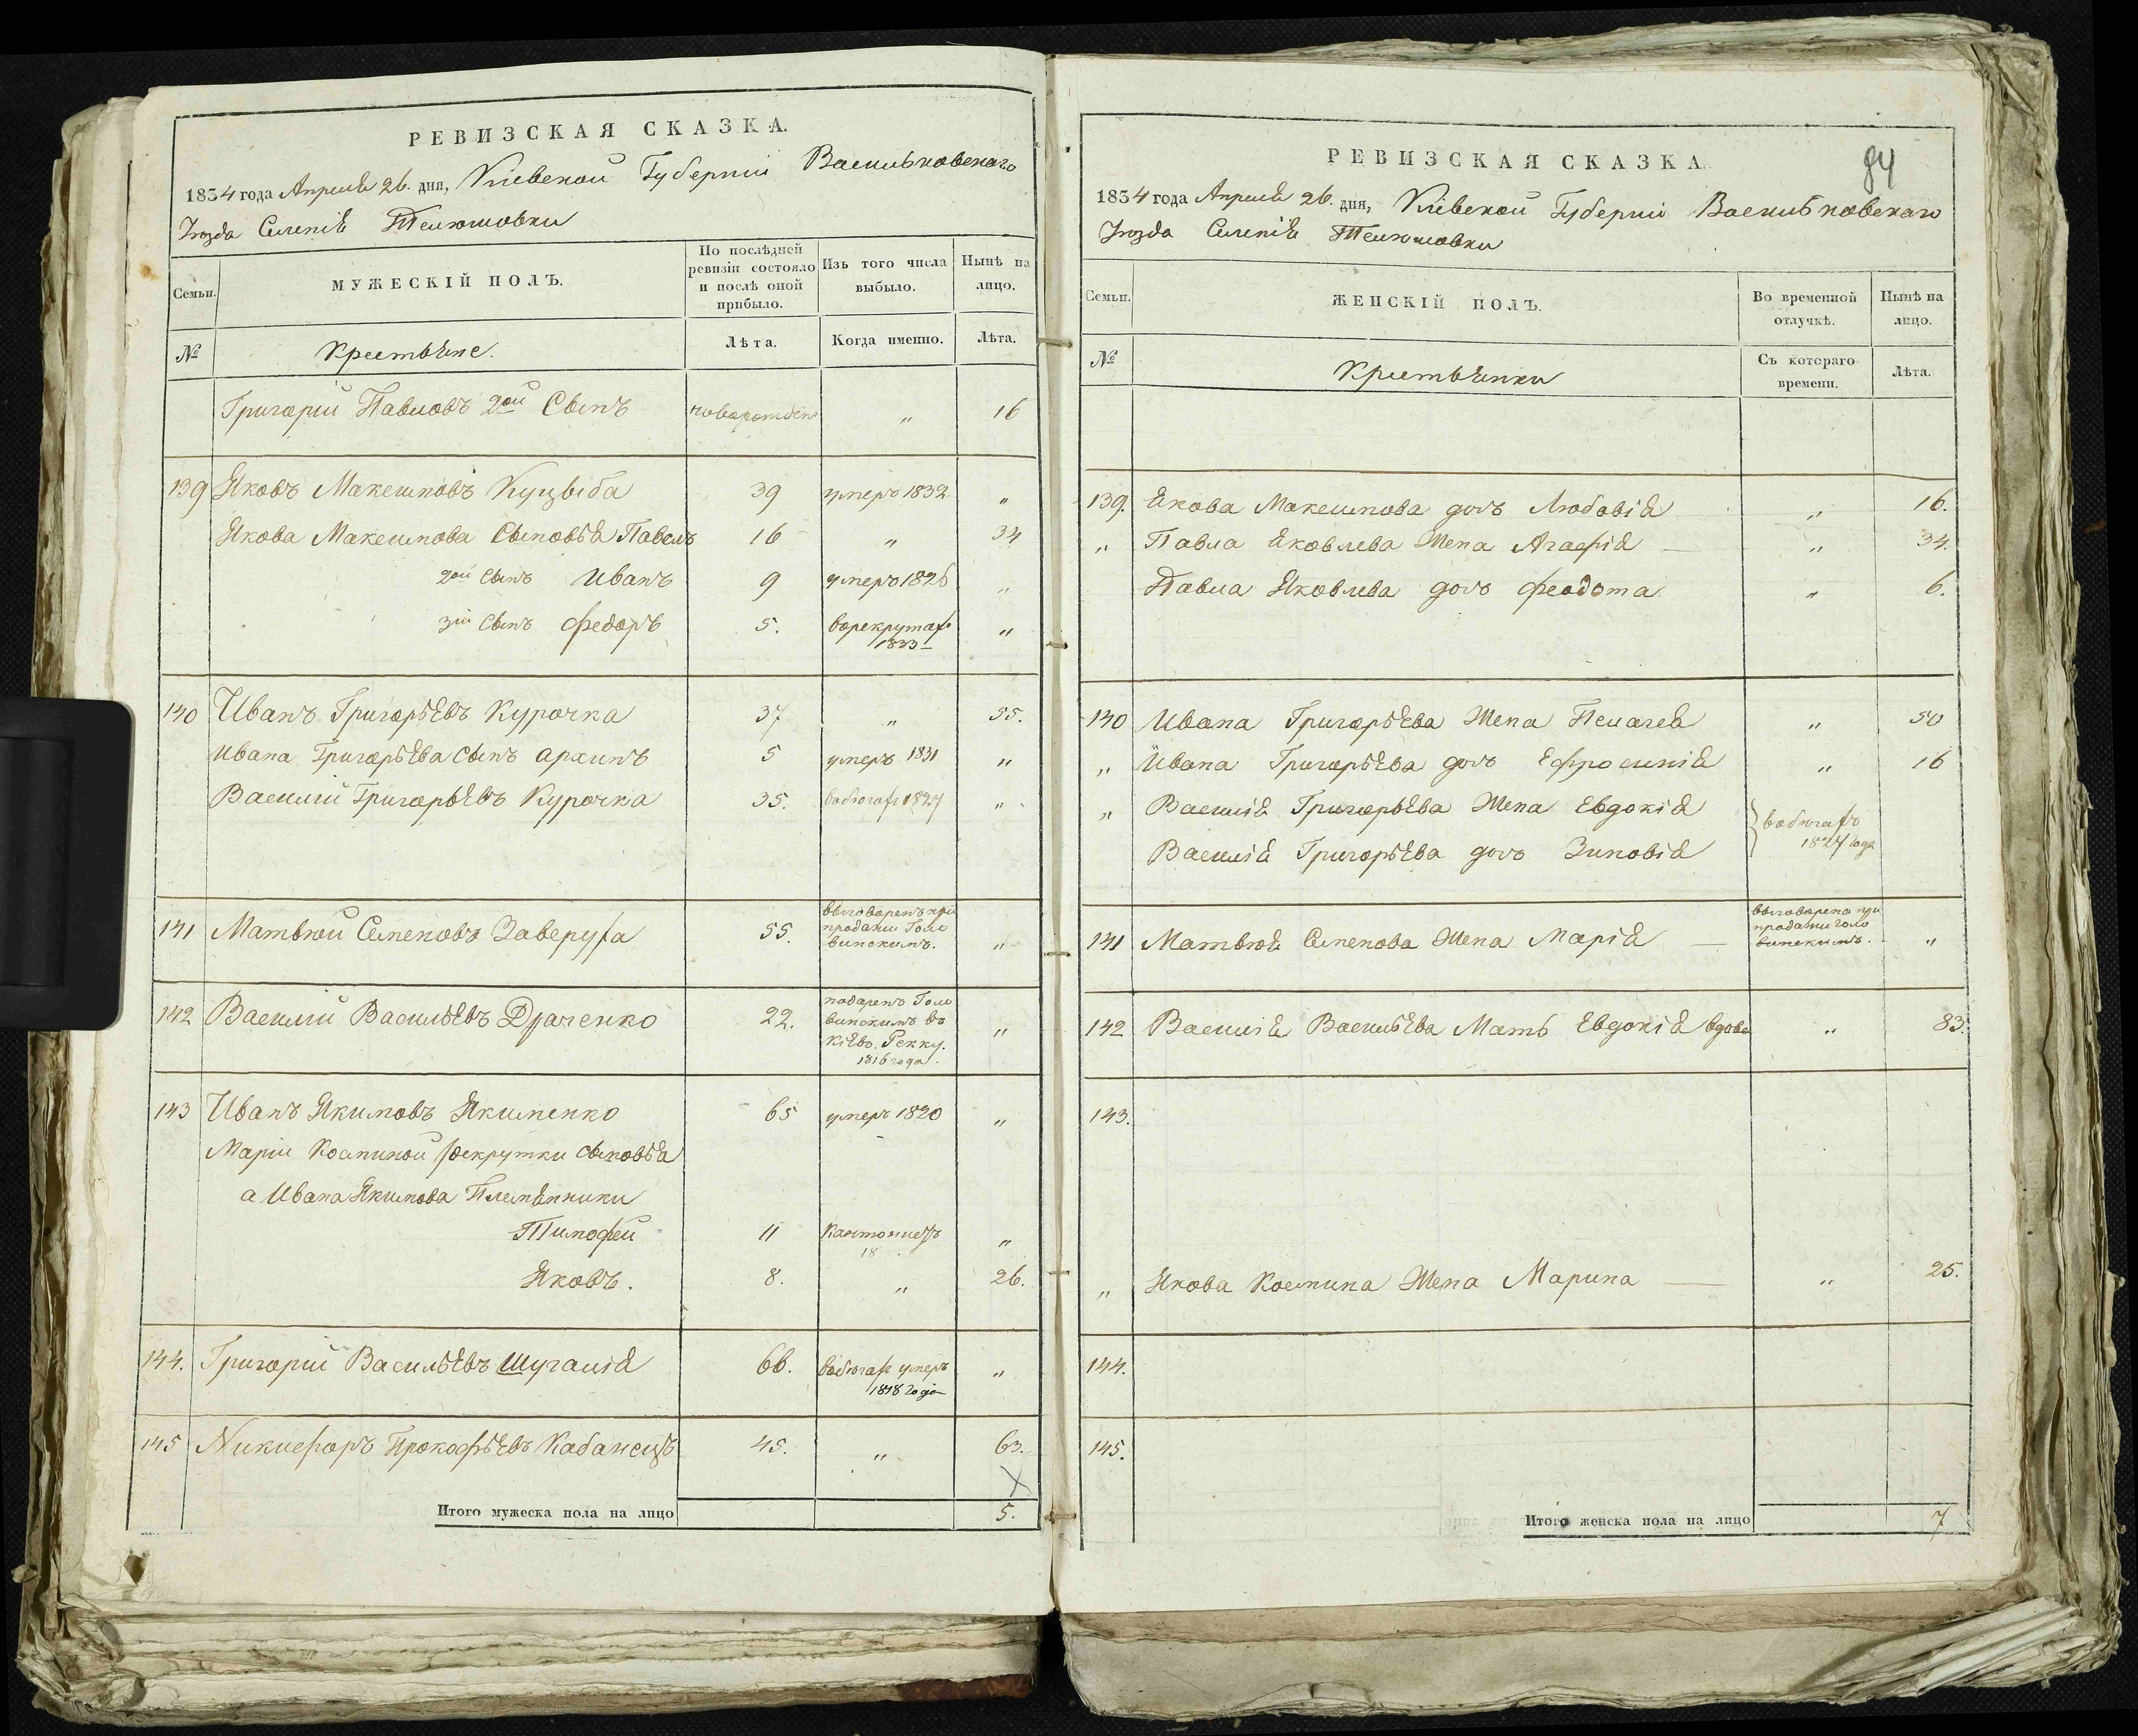 РЕВИЗСКАЯ СКАЗКА.
1834 года Апреля 26. дня, Кіевской Губерніи Васильковскаго
Уезда Селенія Телюшовки
Семьи.
МУЖЕСКІЙ ПОЛЪ.
По послѣдней ревизіи состояло и послѣ оной прибыло.
Изъ того числа выбыло.
Нынѣ на лицо.
№
Крестьяне.
Лѣта.
Когда именно.
Лѣта.
Григорій Павловъ 2ой Сынъ новорожден „ 16
139 Яковъ Максимовъ Куцвіба 39 умеръ 1832 „
Якова Максимова Сыновья Павелъ 16 „ 34
2ой Сынъ Иванъ 9 умеръ 1826 „
3ій Сынъ Федоръ 5. врекрутах „
1833
140 Иванъ Григорьевъ Курочка 37 „ 55.
Ивана Григорьева Сынъ Архипъ 5 умеръ 1831 „
Василій Григорьевъ Курочка 35. вбѣгах 1824 „
141 Матвѣй Семеновъ Заверуха 55. выговоренъ при
продажи Голо
винскимъ. „
142 Василій Васильевъ Драченко 22. подаренъ Голо
винскимъ въ
Кіевъ.
1816 года. „
143 Иванъ Якимовъ Якименко 65 умеръ 1820 „
Маріи Косминой рекрутки сыновья
а Ивана Якимова Племянники
Тимофей 11 Кантонистъ „
18
Яковъ. 8. „ 26.
144. Григорій Васильевъ Шугалія 66. вбѣгах умеръ „
1818 года
145 Никифоръ Прокофьевъ Кабанецъ 45. „ 63.
Итого мужеска пола на лицо 5.
84
РЕВИЗСКАЯ СКАЗКА
1834 года Апреля 26. дня, Кіевской Губерніи Васильковскаго
Уезда Селенія Телюшовки
Семьи.
ЖЕНСКІЙ ПОЛЪ.
Во временной отлучкѣ.
Нынѣ на лицо.
№
Крестьянки
Съ котораго времени.
Лѣта.
139. Якова Максимова дочь Любовія „ 16.
„ Павла Яковлева Жена Агафія „ 34.
Павла Яковлева дочь Феодота „ 6.
140 Ивана Григорьева Жена Пелагея „ 50
„ Ивана Григорьева дочь Ефросинія „ 16
„ Василія Григорьева Жена Евдокія вбѣгахъ
Василія Григорьева дочь Зиновія 1824 года
141 Матвѣя Семенова Жена Марія выговорена при
продажи Голо
винскимъ. „
142 Василія Васильева Мать Евдокія вдова „ 83.
143.
„ Якова Космина Жена Марина „ 25.
144.
145.
Итого женска пола на лицо 7